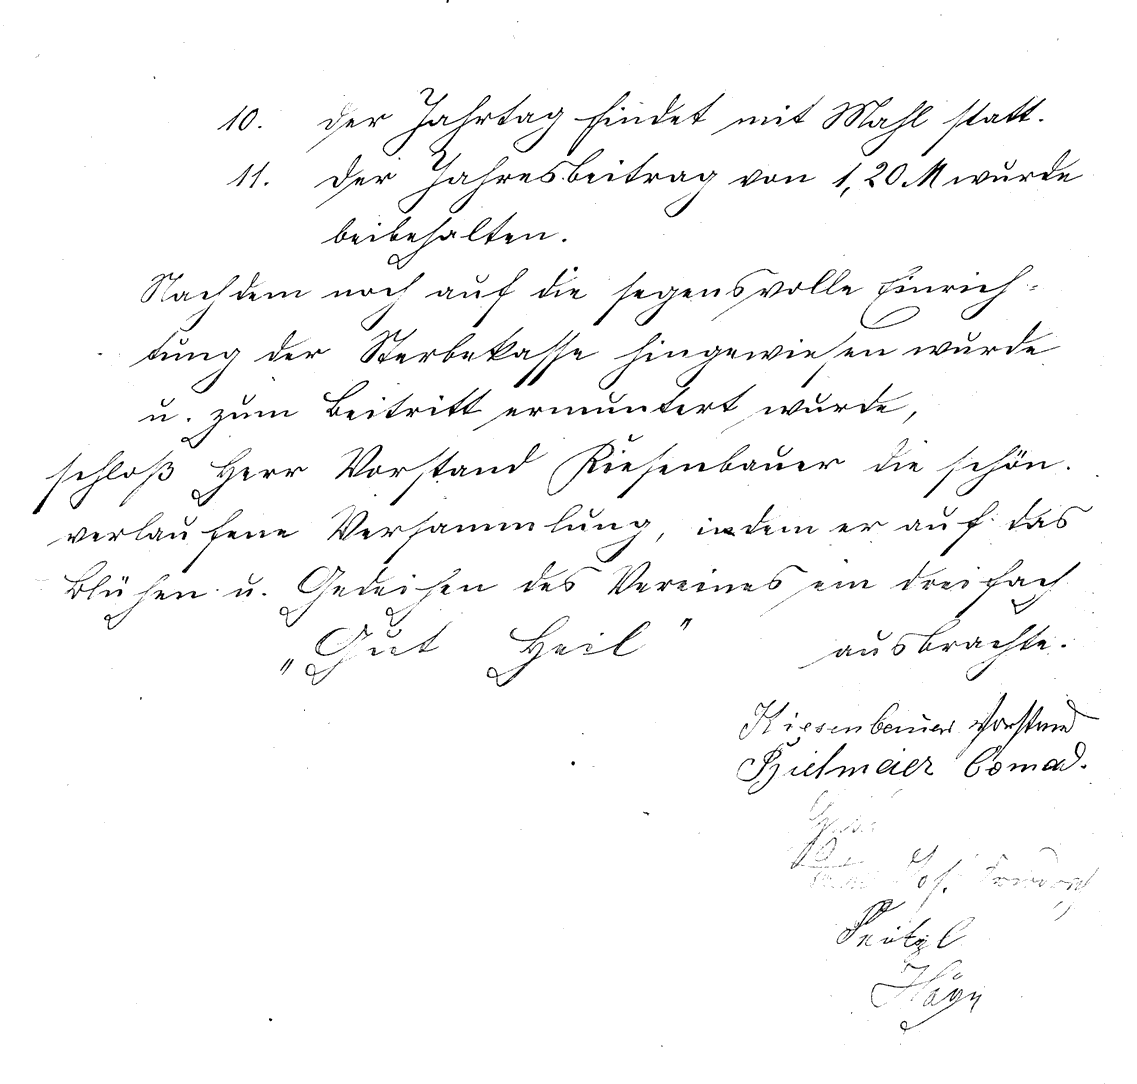 10. Der Jahrtag findet mit Mahl statt.
11. Der Jahresbeitrag von 1,20 M wurde
beibehalten.
Nachdem noch auf die segensvolle Einrich-
tung der Sterbekasse hingewiesen wurde
u. zum Beitritt ermuntert wurde,
schloß Herr Vorstand Kiesenbauer die schön
verlaufene Versammlung, indem er auf das
Blühen u. Gedeihen des Vereines ein dreifach
„Gut Heil" ausbrachte.
Kiesenbauer Vorstand
Jos.